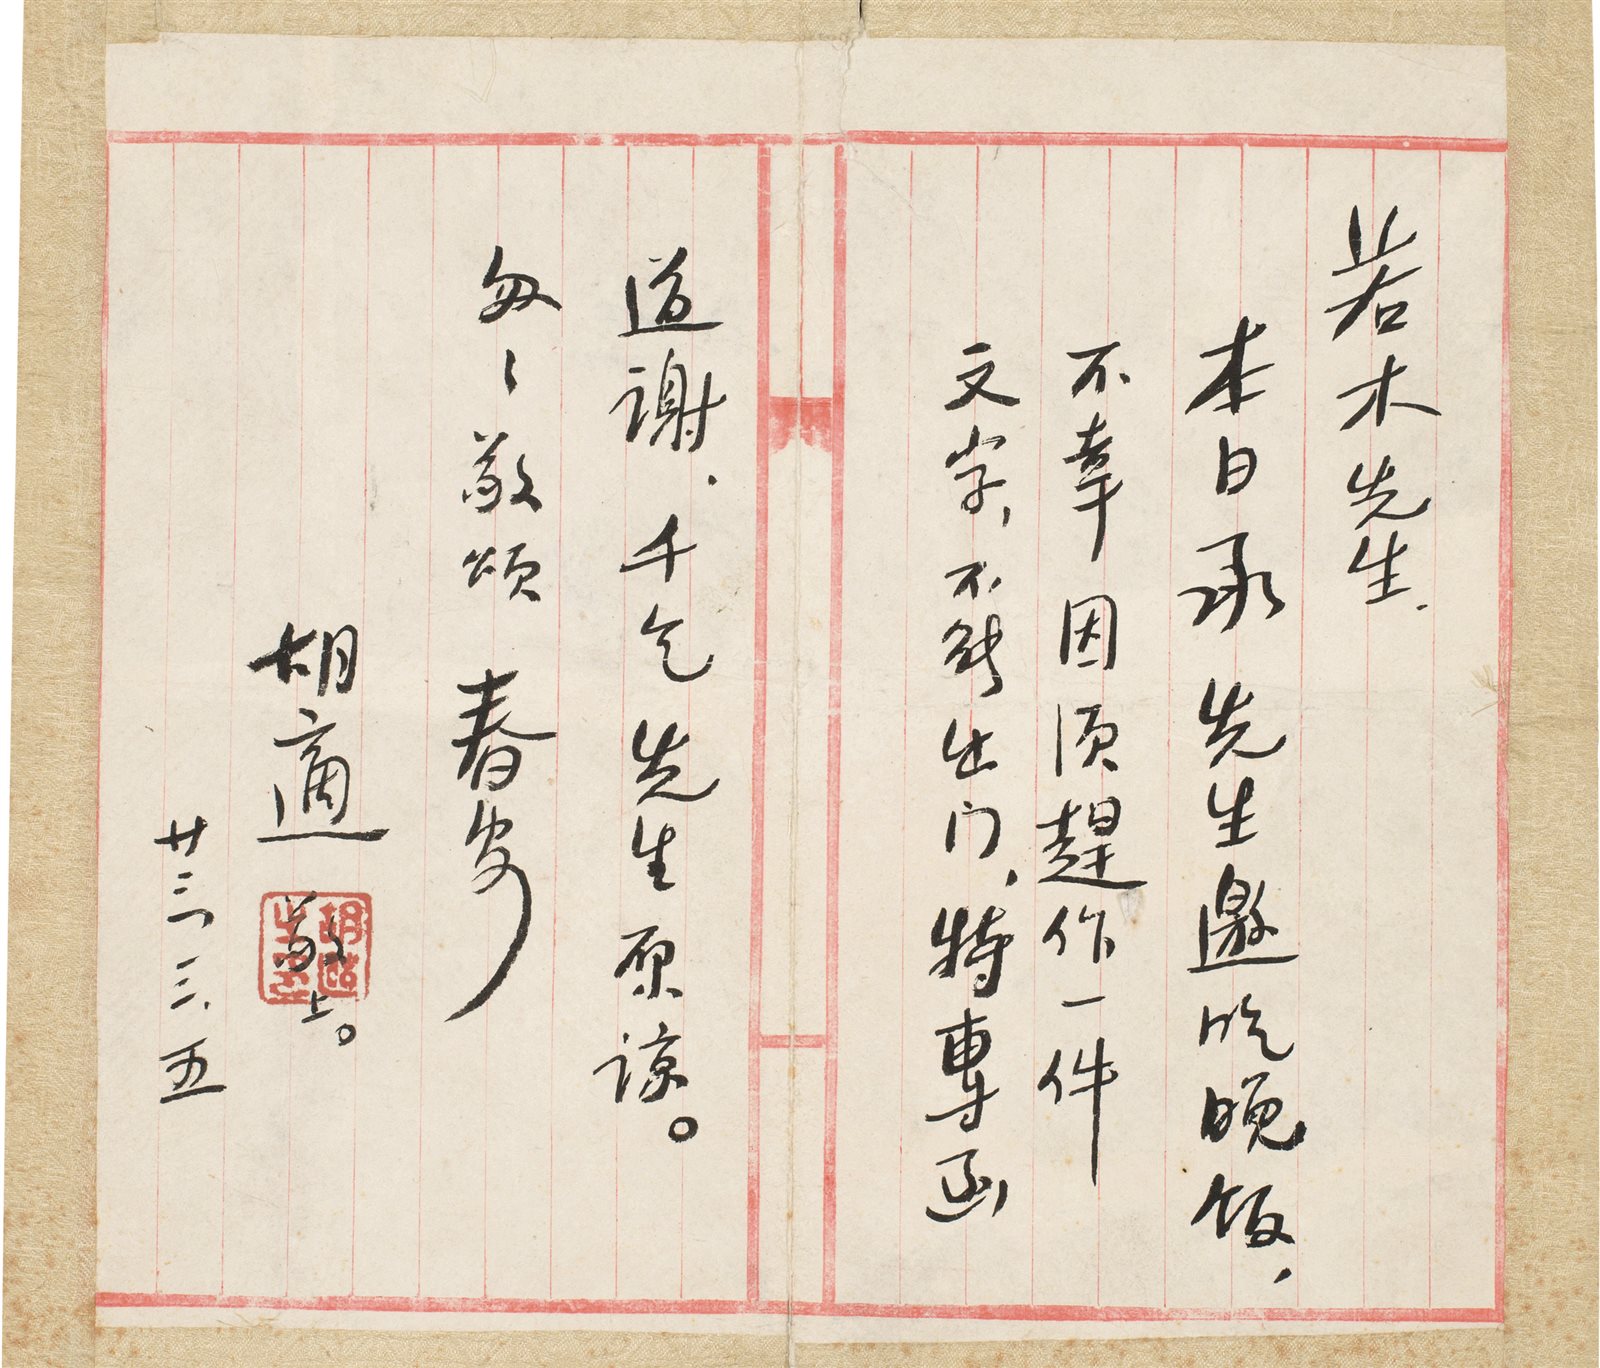 若木先生．
本日承 先生邀吃晚飯，
不幸因須趕作一件
文字，不能出门，特專函
道謝．千乞先生原諒。
匆〻敬頌 春安
胡適 敬上。
廿三，三，五
胡適之璽